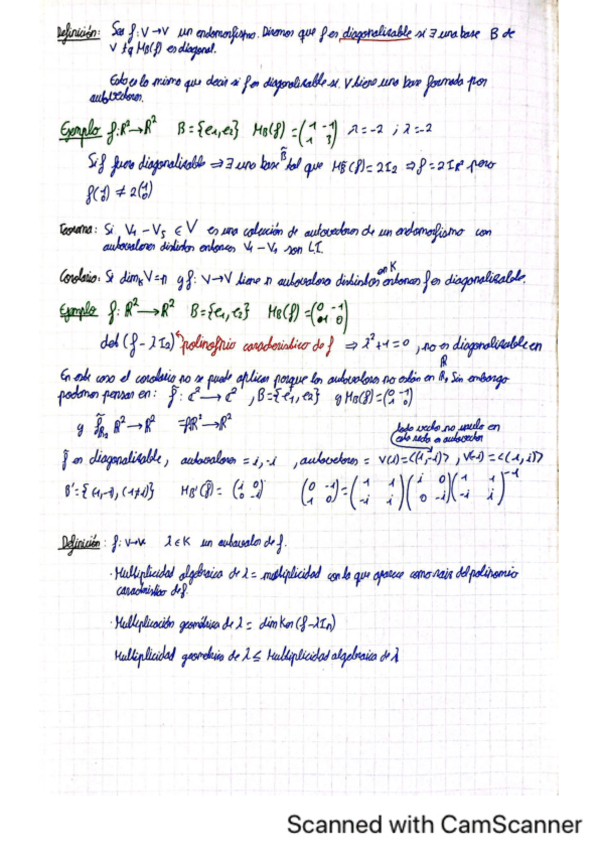 Definición: Sea f: V→V un endomorfismo. Diremos que f es diagonalizable si ∃ una base B de
V tq MB(f) es diagonal.
Esto es lo mismo que decir si f es diagonalizable si V tiene una base formada por
autovectores.
Ejemplo f: R²→R² B = {e1, e2} MB(f) = (1 -1; 1 3) λ=-2 ; λ=-2
Si f fuera diagonalizable ⇒ ∃ una base B̃ tal que MB̃(f) = 2I2 ⇒ f = 2IR² pero
f(1 0) ≠ 2(1 0)
Teorema: Si V1 - Vs ∈ V es una colección de autovectores de un endomorfismo con
autovalores distintos entonces V1 - Vs son LI.
Corolario: Si dimK V = n y f: V→V tiene n autovalores distintos en K entonces f es diagonalizable.
Ejemplo f: R²→R² B = {e1, e2} MB(f) = (0 -1; 1 0)
det (f - λ In) polinomio característico de f ⇒ λ²+1=0, no es diagonalizable en
R
En este caso el corolario no se puede aplicar porque los autovalores no están en R, Sin embargo
podemos pensar en: f̃: C²→C², B = {e1, e2} y MB(f) = (0 -1; 1 0)
y f̃|R² R²→R² = f R²→R²
todo vector no nulo en
f̃ es diagonalizable, autovalores = i, -i, autovectores = V(i) = <(1,-i)>, V(-i) = <(1,i)>
B' = {(1,-i), (1+i)} MB'(f̃) = (i 0; 0 -i) (0 -1; 1 0) = (1 1; -i i)(i 0; 0 -i)(1 1; -i i)⁻¹
Definición: f: V→V λ ∈ K un autovalor de f.
· Multiplicidad algebraica de λ = multiplicidad con la que aparece como raiz del polinomio
característico de f.
· Multiplicación geométrica de λ = dim Ker (f - λIn)
Multiplicidad geometrica de λ ≤ Multiplicidad algebraica de λ
Scanned with CamScanner